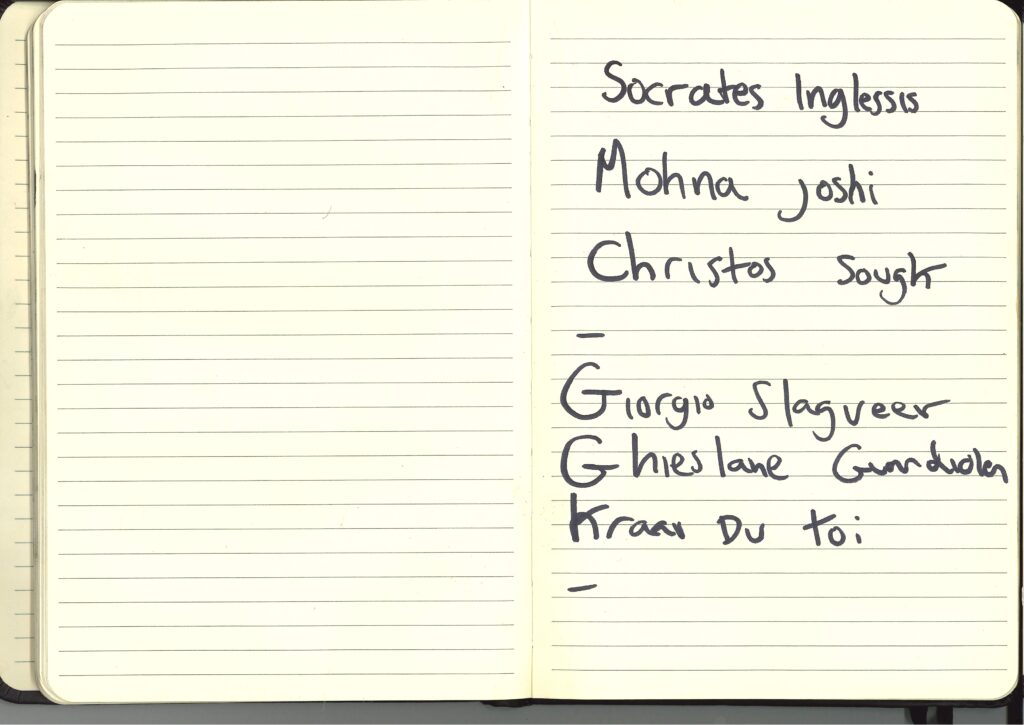 Socrates Inglessis
Mohna Joshi
Christos Sougk
–
Giorgio Slagveer
Ghieslane
Kraav Du toi
–